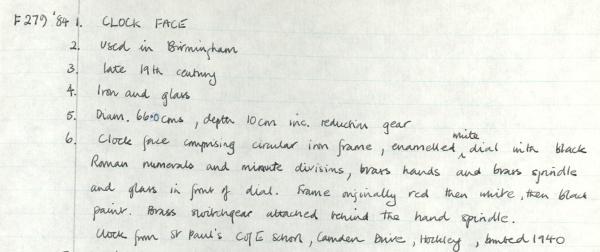 F279 '84 1. CLOCK FACE
2. Used in Birmingham
3. late 19th century
4. Iron and glass
5. Diam. 66.0cms, depth 10cm inc. reduction gear
6. Clock face comprising circular iron frame, enamelled white dial with black
Roman numerals and minute divisions, brass hands and brass spindle
and glass in front of dial. Frame originally red then white, then black
paint. Brass switchgear attached behind the hand spindle.
Clock from St Paul's C of E School, Camden Drive, Hockley, bombed 1940